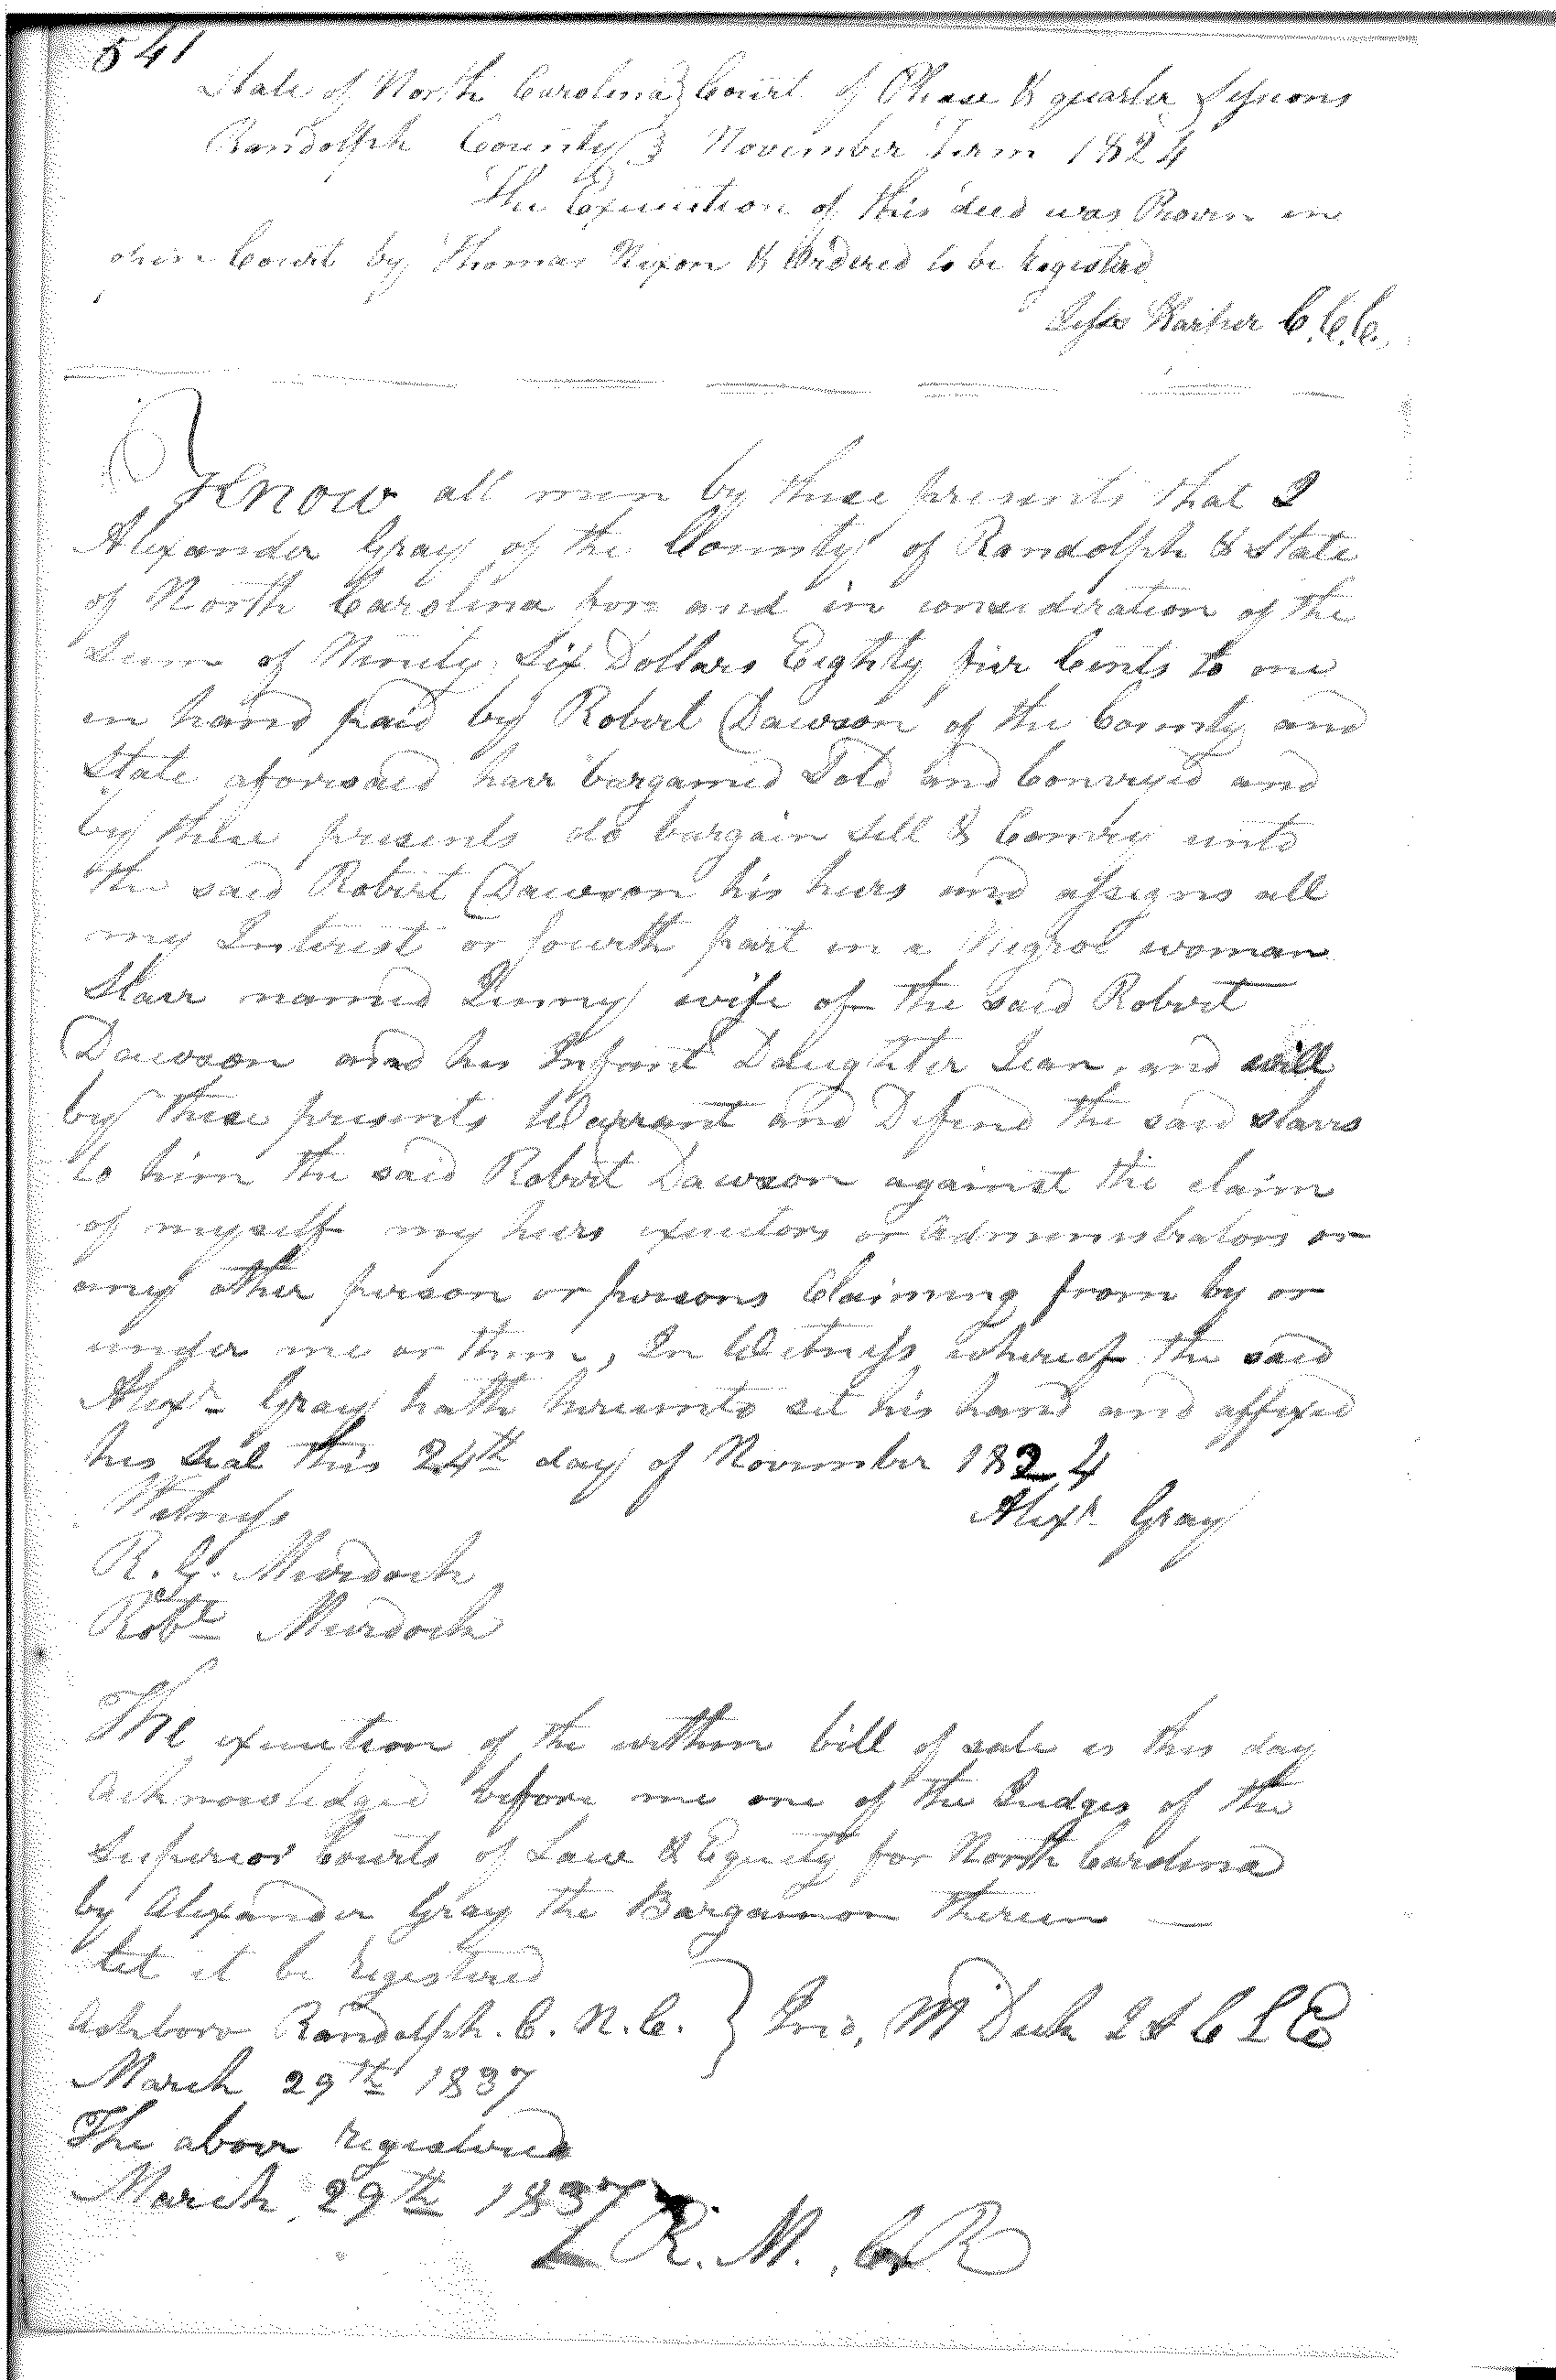 541
State of North Carolina } Court of Please & quarter Sessions
Randolph County } November Term 1824
The Execution of this deed was Proven in
open Court by Thomas Nixon & Ordered to be Registerd
Jesse Harper C.C.C.
Know all men by these presents that I
Alexander Gray of the County of Randolph & State
of North Carolina for and in consideration of the
Sum of Ninety Six Dollars Eighty five Cents to me
in hand paid by Robert Dawson of the County and
State aforesaid have bargained Sold and Conveyed and
by these presents do bargain sell & Convey unto
the said Robert Dawson his heirs and assigns all
my Interest or fourth part in a Negroe woman
Slave named Jenny wife of the said Robert
Dawson and her Infant Daughter Jean, and will
by these presents Warrant and Defend the said slaves
to him the said Robert Dawson against the claim
of myself my heirs executors or Administrators or
any other person or persons Claiming from by or
under me or them, In Witness whereof the said
Alexr Gray hath hereunto set his hand and affixed
his Seal this 24th day of November 1824
Witness Alexr Gray
R. G. Murdoch
Robt Murdoch
The execution of the within bill of sale is this day
Acknowledged before me one of the Judges of the
Superior Courts of Law & Equity for North Carolina
by Alexander Gray the Bargainor Therein —
let it be registered
Ashboro Randolph. C. N. C. } Jno, M Dick J S C L E
March 29th 1837
The above registered
March 29th 1837
R. M.